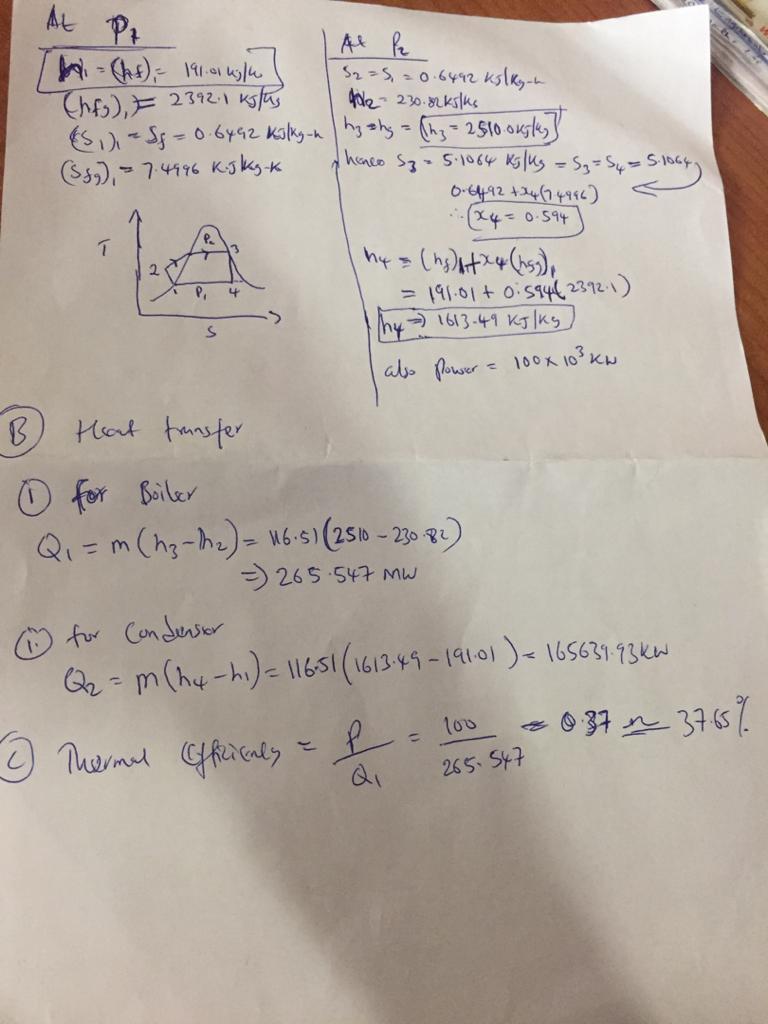 At P1
h1 = (hf)1 = 191.01 kJ/k
(hfg)1 = 2392.1 KJ/kg
(S1)1 = Sf = 0.6492 KJ/kg-k
(Sfg)1 = 7.4996 KJ/kg-k
T
P2
2
3
1
P1
4
S
At P2
S2 = S1 = 0.6492 KJ/kg-k
h2 = 230.82 KJ/kg
h3 = hg = (h3 = 2510.0 kJ/kg)
hence S3 = 5.1064 KJ/kg = S3 = S4 = 5.1064
0.6492 + x4(7.4996)
∴ x4 = 0.594
h4 = (hf)1 + x4 (hfg)1
= 191.01 + 0.594(2392.1)
h4 => 1613.49 KJ/kg
also power = 100 × 10³ KW
B Heat transfer
1 for Boiler
Q1 = m(h3-h2) = 116.51(2510 - 230.82)
=> 265.547 MW
for Condensor
Q2 = m(h4-h1) = 116.51(1613.49 - 191.01) = 165639.93KW
C Thermal Efficiency = P/Q1 = 100/265.547 = 0.37 ≈ 37.65%